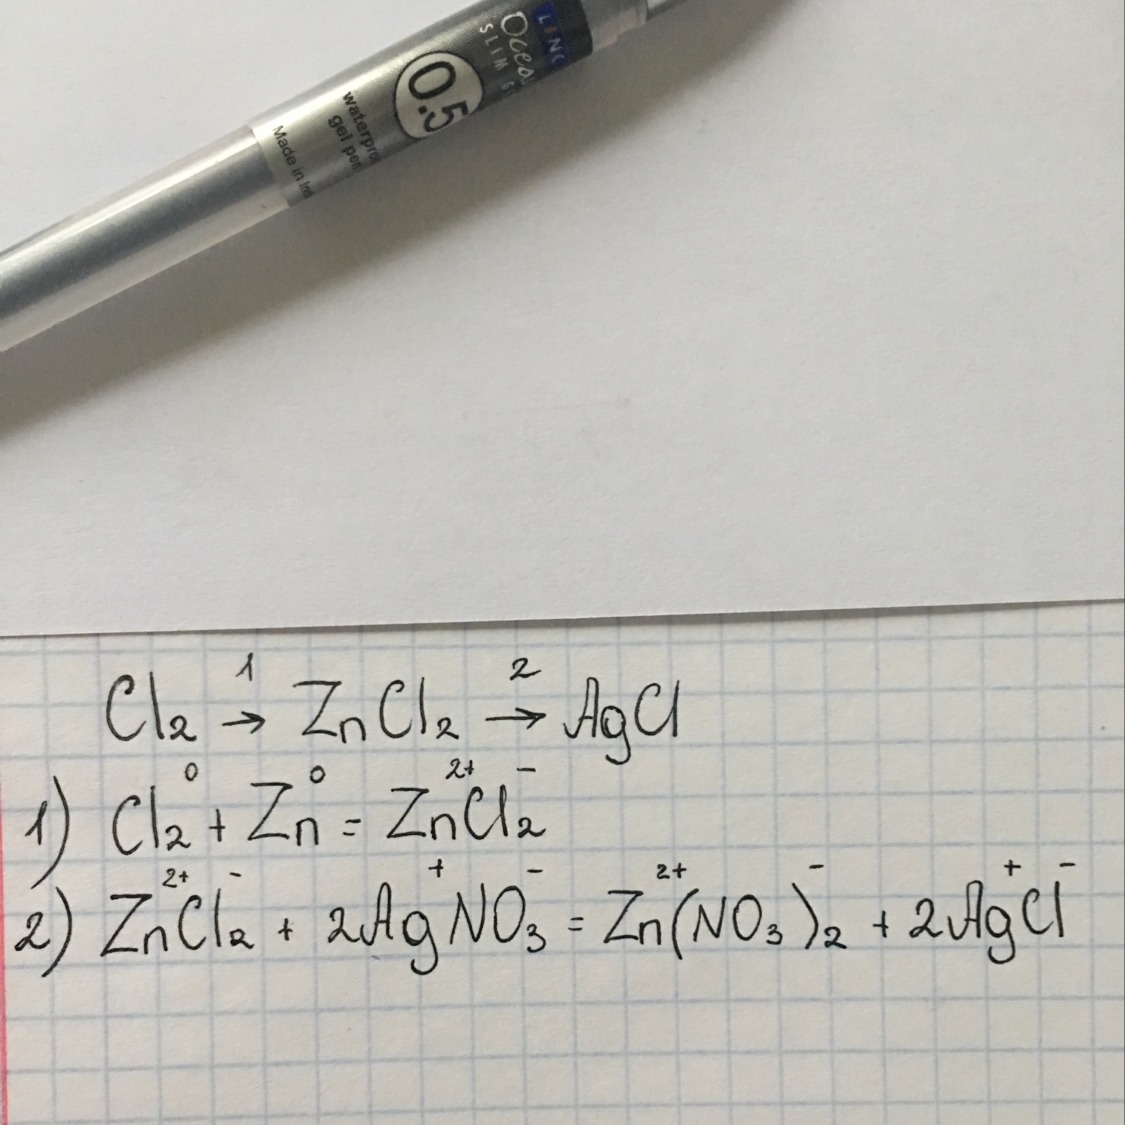 LINC
Ocea
SLIM G
0.5
waterpro
gel pen
Made in In
Cl₂ →¹ ZnCl₂ →² AgCl
1) Cl₂⁰ + Zn⁰ = Zn²⁺Cl₂⁻
2) Zn²⁺Cl₂⁻ + 2Ag⁺NO₃⁻ = Zn²⁺(NO₃)₂⁻ + 2Ag⁺Cl⁻